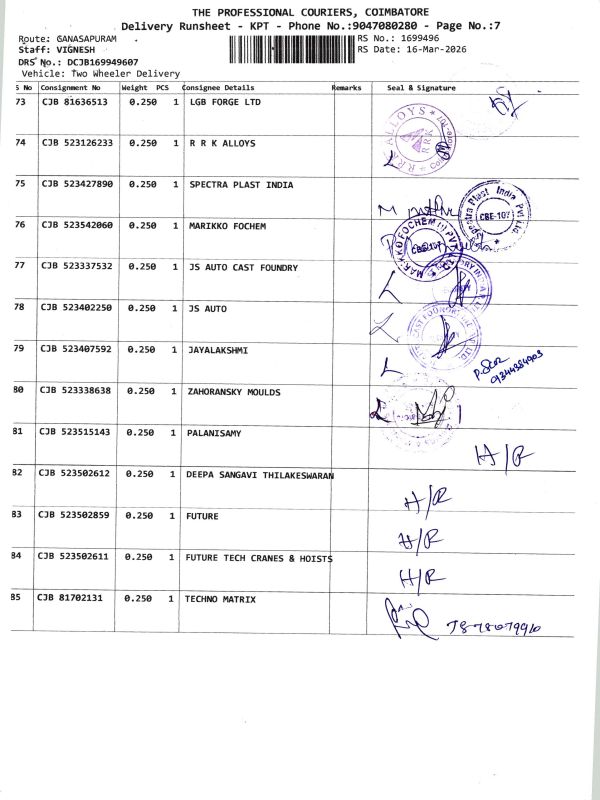 THE PROFESSIONAL COURIERS, COIMBATORE
Delivery Runsheet - KPT - Phone No.:9047080280 - Page No.:7
Route: GANASAPURAM RS No.: 1699496
Staff: VIGNESH RS Date: 16-Mar-2026
DRS No.: DCJB169949607
Vehicle: Two Wheeler Delivery
S No Consignment No Weight PCS Consignee Details Remarks Seal & Signature
73 CJB 81636513 0.250 1 LGB FORGE LTD
74 CJB 523126233 0.250 1 R R K ALLOYS
RRK ALLOYS
RRK
75 CJB 523427890 0.250 1 SPECTRA PLAST INDIA
Spectra Plast India Pvt Ltd.
CBE-107
76 CJB 523542060 0.250 1 MARIKKO FOCHEM
MARIKKO FOCHEM (I) PVT LTD
77 CJB 523337532 0.250 1 JS AUTO CAST FOUNDRY
78 CJB 523402250 0.250 1 JS AUTO
79 CJB 523407592 0.250 1 JAYALAKSHMI
9344384903
80 CJB 523338638 0.250 1 ZAHORANSKY MOULDS
81 CJB 523515143 0.250 1 PALANISAMY
H/R
82 CJB 523502612 0.250 1 DEEPA SANGAVI THILAKESWARAN
H/R
83 CJB 523502859 0.250 1 FUTURE
H/R
84 CJB 523502611 0.250 1 FUTURE TECH CRANES & HOISTS
H/R
85 CJB 81702131 0.250 1 TECHNO MATRIX